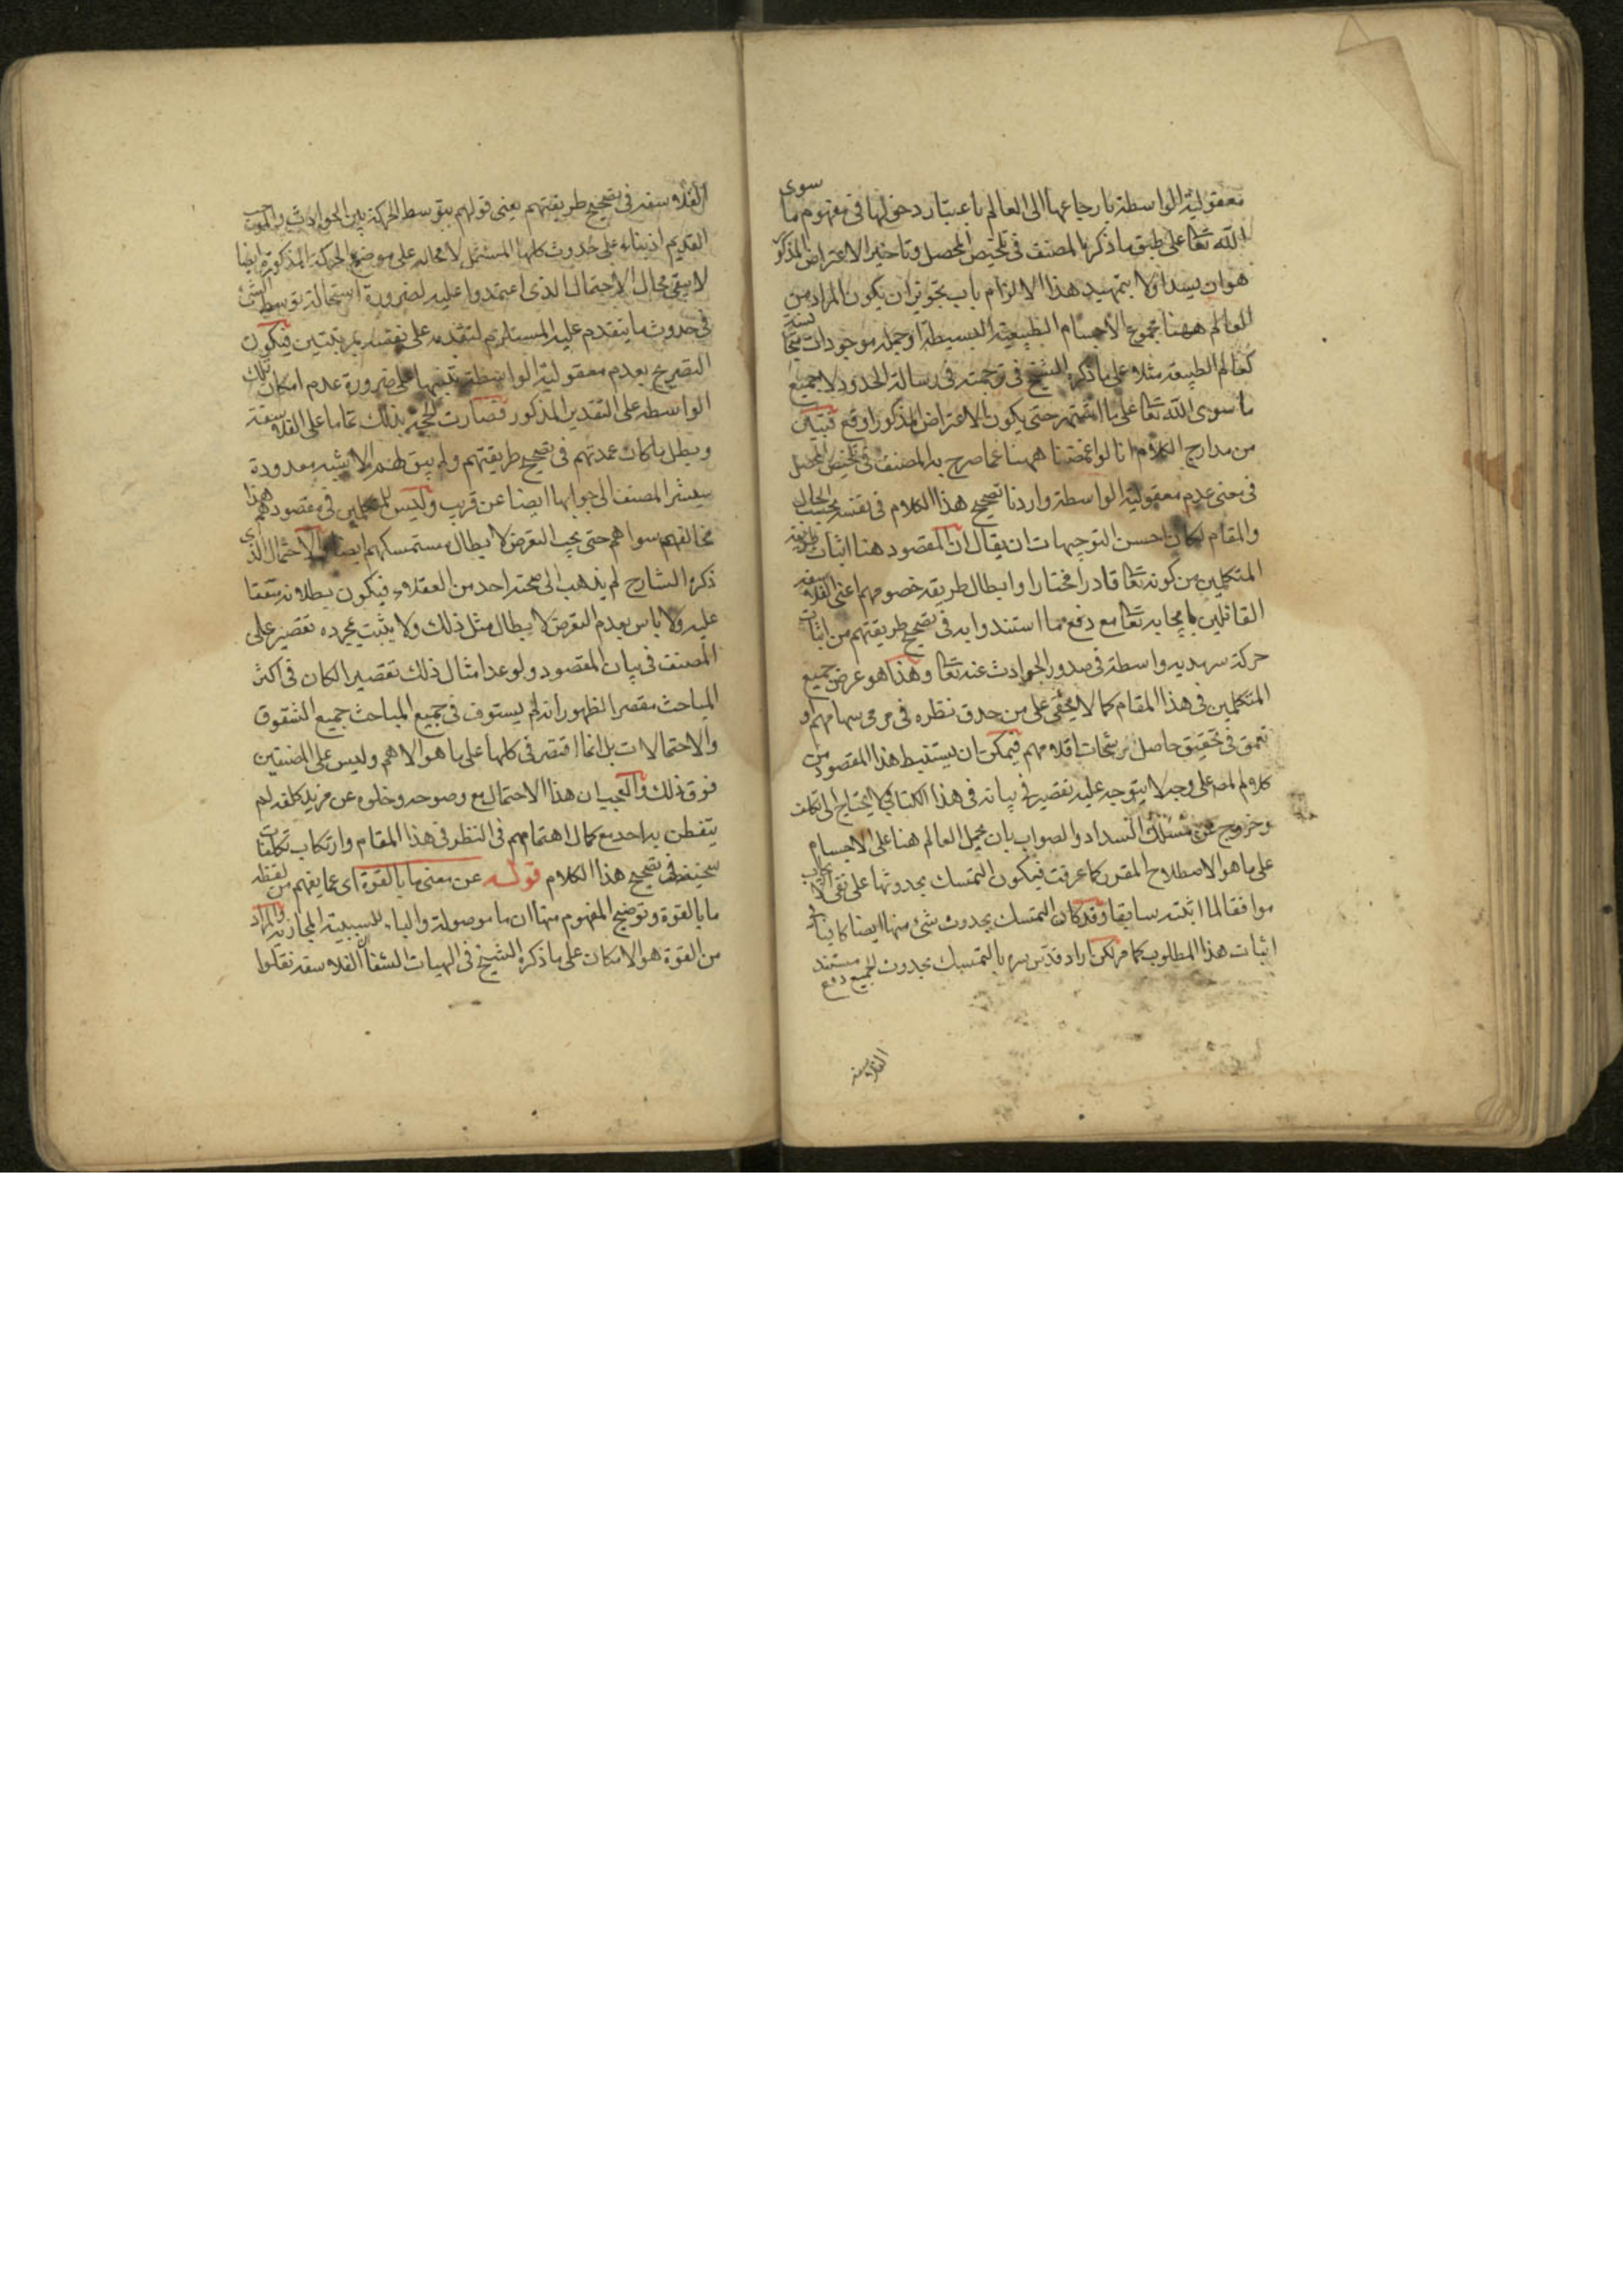 معقولية الواسطة بارجاعها الى العالم باعتبار دخولها فى مفهوم ما سوى
الله تعا على طبق ما ذكره المصنف فى تلخيص المحصل وتاخير الاعتراض المذكور
هو ان يسد اولا بتمهيد هذا الالزام باب تجويز ان يكون المراد من
العالم ههنا مجموع الاجسام الطبيعية البسيطة او جملة موجودات متجانسة
كعالم الطبيعة مثلا على ما ذكره الشيخ فى ترجمته فى رسالة الحدود لا جميع
ما سوى الله تعا على ما اثبتهم حتى يكون الاعتراض المذكور اوقع فتبين
من مدارج الكلام انا لو اغمضنا ههنا عما صرح به المصنف فى تلخيص المحصل
فى معنى عدم معقولية الواسطة واردنا تصحيح هذا الكلام فى نفسه بحسب الحال
والمقام لكان احسن التوجيهات ان يقال ان المقصود هنا اثبات طريقة
المتكلمين من كونه تعا قادرا مختارا وابطال طريقة خصومهم اعنى الفلاسفة
القائلين بايجابه تعا مع دفع ما استندوا به فى تصحيح طريقتهم من اثبات
حركة سرمدية واسطة فى صدور الحوادث عنه تعا وهذا هو غرض جميع
المتكلمين فى هذا المقام كما لا يخفى على من حدق نظره فى مرمى سهامهم و
تعمق فى تحقيق حاصل رشحات اقلامهم فيمكن ان يستنبط هذا المقصود من
كلام المص على وجه لا يتوجه عليه تقصير فى بيانه فى هذا الكتاب ولا يحتاج الى تكلف
وخروج عن مسلك السداد والصواب بان يحمل العالم هنا على الاجسام
على ما هو الاصطلاح المقرر كما عرفت فيكون التمسك بحدوثها على نفى الايجاب
موافقا لما اثبته سابقا وقد كان التمسك بحدوث شئ منها ايضا كافيا فى
اثبات هذا المطلوب كما مر لكن اراد قدس سره بالتمسك بحدوث الجميع دفع مستند
الفلاسفة
الفلاسفة فى تصحيح طريقتهم يعنى قولهم بتوسط الحركة بين الحوادث والموجب
القديم اذ بناء على حدوث كلها المشتمل لا محالة على موضوع الحركة المذكورة ايضا
لا يبقى مجال الاحتمال الذى اعتمدوا عليه لضرورة استحالة توسط الشئ
فى حدوث ما يتقدم عليه المستلزم لتقدمه على نفسه بمرتبتين فيكون
التصريح بعدم معقولية الواسطة تنبيها على ضرورة عدم امكان تلك
الواسطة على التقدير المذكور فصارت الحجة بذلك تماما على الفلاسفة
وبطل ما كان عمدتهم فى تصحيح طريقتهم ولم يبق لهم الا شبه معدودة
سيشير المصنف الى جوابها ايضا عن قريب وليس للمتكلمين فى مقصودهم هذا
مخالفهم سواهم حتى يجب التعرض لابطال مستمسكهم ايضا والاحتمال الذى
ذكره الشارح لم يذهب الى صحته احد من العقلاء فيكون بطلانه متفقا
عليه ولا باس بعدم التعرض لابطال مثل ذلك ولا يثبت بمجرده تقصير على
المصنف فى بيان المقصود ولو عد امثال ذلك تقصيرا لكان فى اكثر
المباحث مقصرا لظهور انه لم يستوف فى جميع المباحث جميع الشقوق
والاحتمالات بل انما اقتصر فى كلها على ما هو الاهم وليس على المصنفين
فوق ذلك والعجب ان هذا الاحتمال مع وضوحه وخلوه عن مزيد كلفه لم
يتفطن به احد مع كمال اهتمامهم فى النظر فى هذا المقام وارتكاب تكلفات
سخيفة فى تصحيح هذا الكلام قوله عن معنى ما بالقوة اى عما يفهم من لفظة
ما بالقوة وتوضيح المفهوم منها ان ما موصولة والباء للسببية المجازية والمراد
من القوة هو الامكان على ما ذكره الشيخ فى الهيات الشفا ان الفلاسفة نقلوا